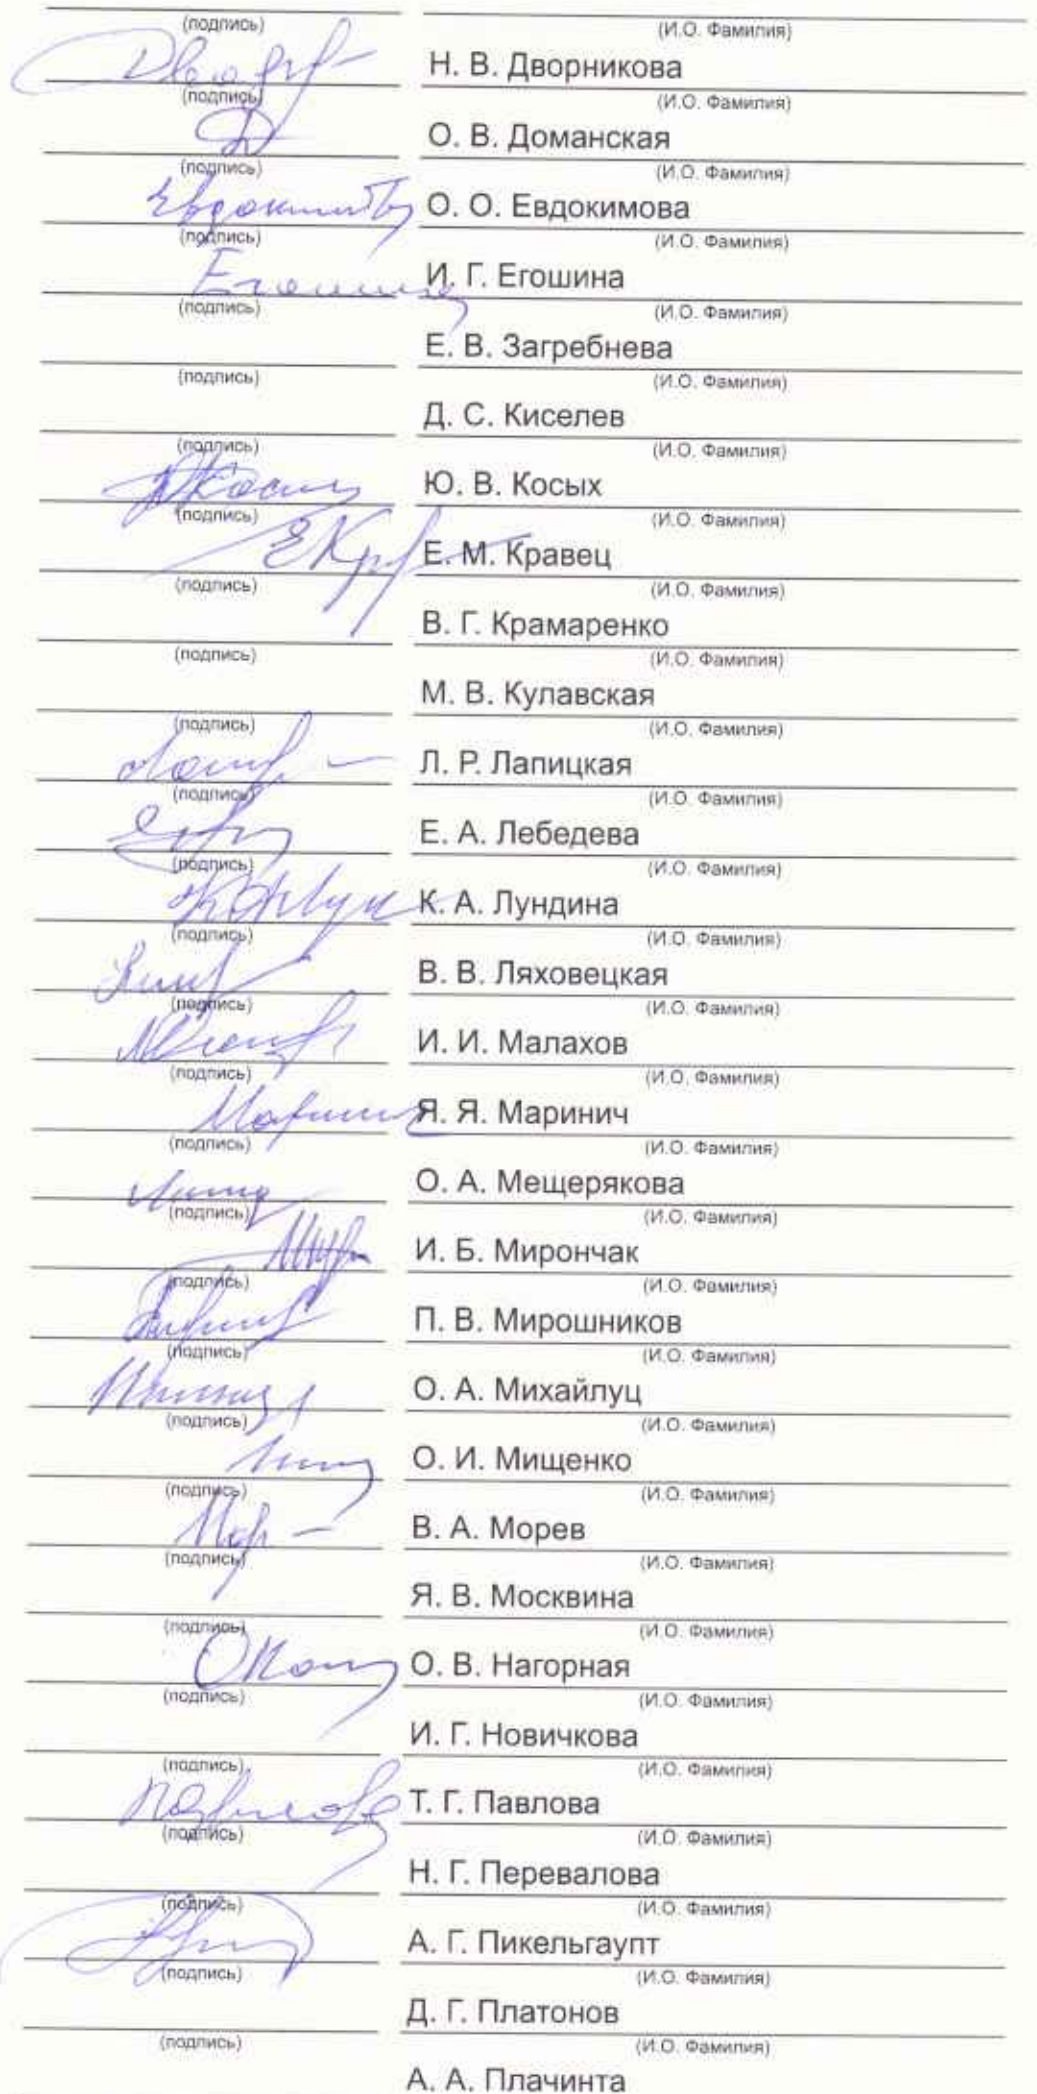 (подпись) (И.О. Фамилия)
Н. В. Дворникова
(подпись) (И.О. Фамилия)
О. В. Доманская
(подпись) (И.О. Фамилия)
Евдокимова О. О. Евдокимова
(подпись) (И.О. Фамилия)
Егошина И. Г. Егошина
(подпись) (И.О. Фамилия)
Е. В. Загребнева
(подпись) (И.О. Фамилия)
Д. С. Киселев
(подпись) (И.О. Фамилия)
Ю. В. Косых
(подпись) (И.О. Фамилия)
Е. М. Кравец
(подпись) (И.О. Фамилия)
В. Г. Крамаренко
(подпись) (И.О. Фамилия)
М. В. Кулавская
(подпись) (И.О. Фамилия)
Л. Р. Лапицкая
(подпись) (И.О. Фамилия)
Е. А. Лебедева
(подпись) (И.О. Фамилия)
К. А. Лундина
(подпись) (И.О. Фамилия)
В. В. Ляховецкая
(подпись) (И.О. Фамилия)
И. И. Малахов
(подпись) (И.О. Фамилия)
Я. Я. Маринич
(подпись) (И.О. Фамилия)
О. А. Мещерякова
(подпись) (И.О. Фамилия)
И. Б. Мирончак
(подпись) (И.О. Фамилия)
П. В. Мирошников
(подпись) (И.О. Фамилия)
О. А. Михайлуц
(подпись) (И.О. Фамилия)
О. И. Мищенко
(подпись) (И.О. Фамилия)
В. А. Морев
(подпись) (И.О. Фамилия)
Я. В. Москвина
(подпись) (И.О. Фамилия)
О. В. Нагорная
(подпись) (И.О. Фамилия)
И. Г. Новичкова
(подпись) (И.О. Фамилия)
Павлова Т. Г. Павлова
(подпись) (И.О. Фамилия)
Н. Г. Перевалова
(подпись) (И.О. Фамилия)
А. Г. Пикельгаупт
(подпись) (И.О. Фамилия)
Д. Г. Платонов
(подпись) (И.О. Фамилия)
А. А. Плачинта